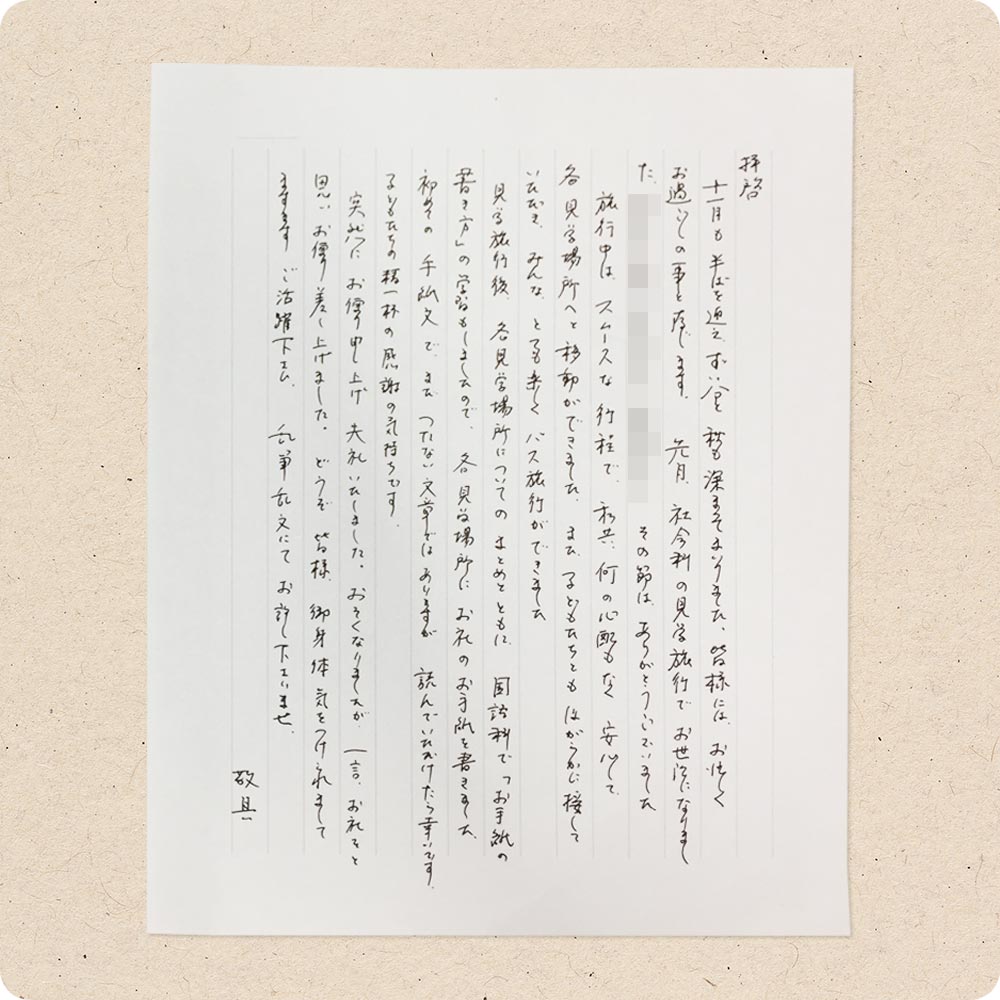 拝啓
十一月も半ばを迎え、ずい分と秋も深まってまいりました。皆様には、お忙しく
お過ごしの事と存じます。先月、社会科の見学旅行でお世話になりまし
た。その節は、ありがとうございました
旅行中は、スムースな行程で、私共、何の心配もなく安心して、
各見学場所へと移動ができました。また、子どもたちともほがらかに接して
いただき、みんな、とても楽しくバス旅行ができました
見学旅行後、各見学場所についてのまとめとともに、国語科で「お手紙の
書き方」の学習もしましたので、各見学場所にお礼のお手紙を書きました。
初めての手紙文で、まだつたない文章ではありますが読んでいただけたら幸いです。
子どもたちの精一杯の感謝の気持ちです。
突然にお便り申し上げ失礼いたしました。おそくなりましたが、一言、お礼をと
思い、お便り差し上げました。どうぞ皆様、御身体気をつけられまして
ますますご活躍下さい。乱筆乱文にてお許し下さいませ。
敬具